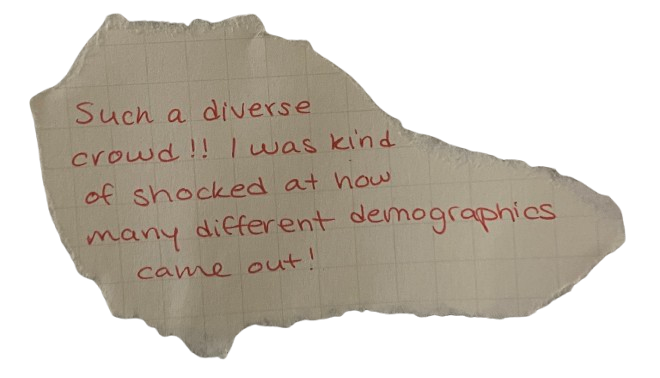 Such a diverse
crowd!! I was kind
of shocked at how
many different demographics
came out!